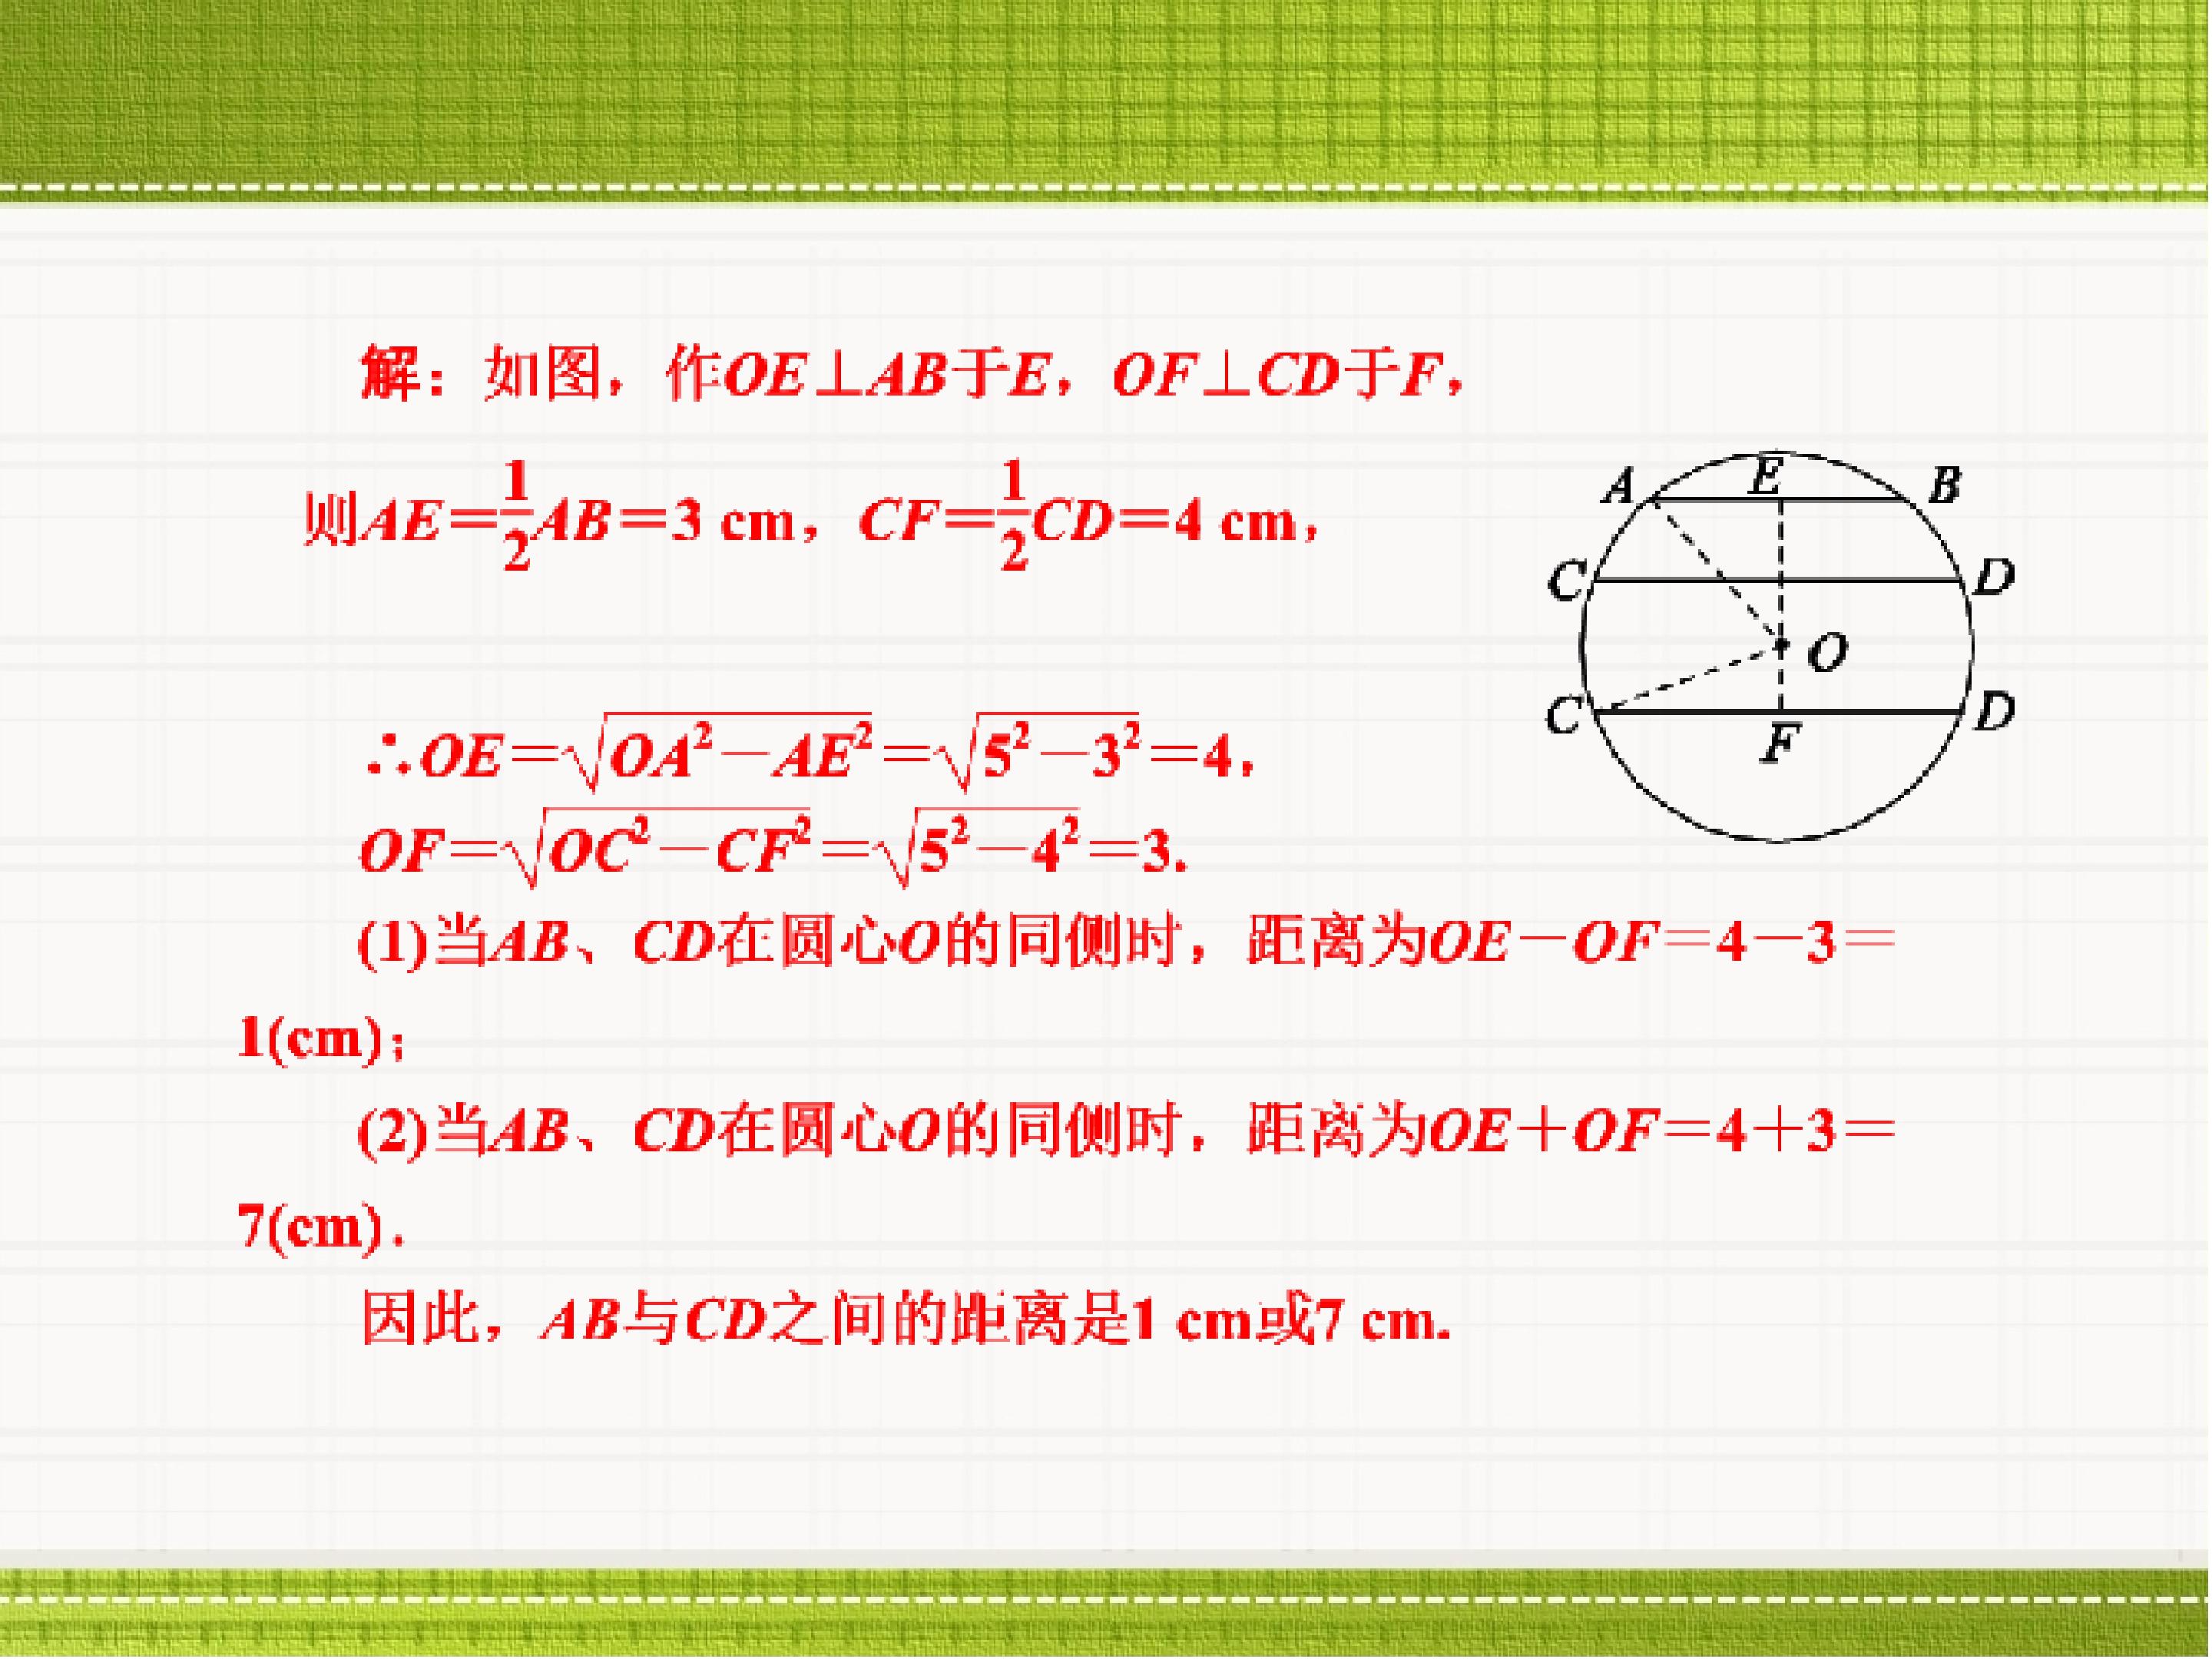 解：如图，作OE⊥AB于E，OF⊥CD于F，
则AE=1/2AB=3 cm，CF=1/2CD=4 cm，
∴OE=√(OA²−AE²)=√(5²−3²)=4，
OF=√(OC²−CF²)=√(5²−4²)=3.
(1)当AB、CD在圆心O的同侧时，距离为OE−OF=4−3=
1(cm)；
(2)当AB、CD在圆心O的同侧时，距离为OE+OF=4+3=
7(cm)．
因此，AB与CD之间的距离是1 cm或7 cm.
A E B
C D
O
C D
F